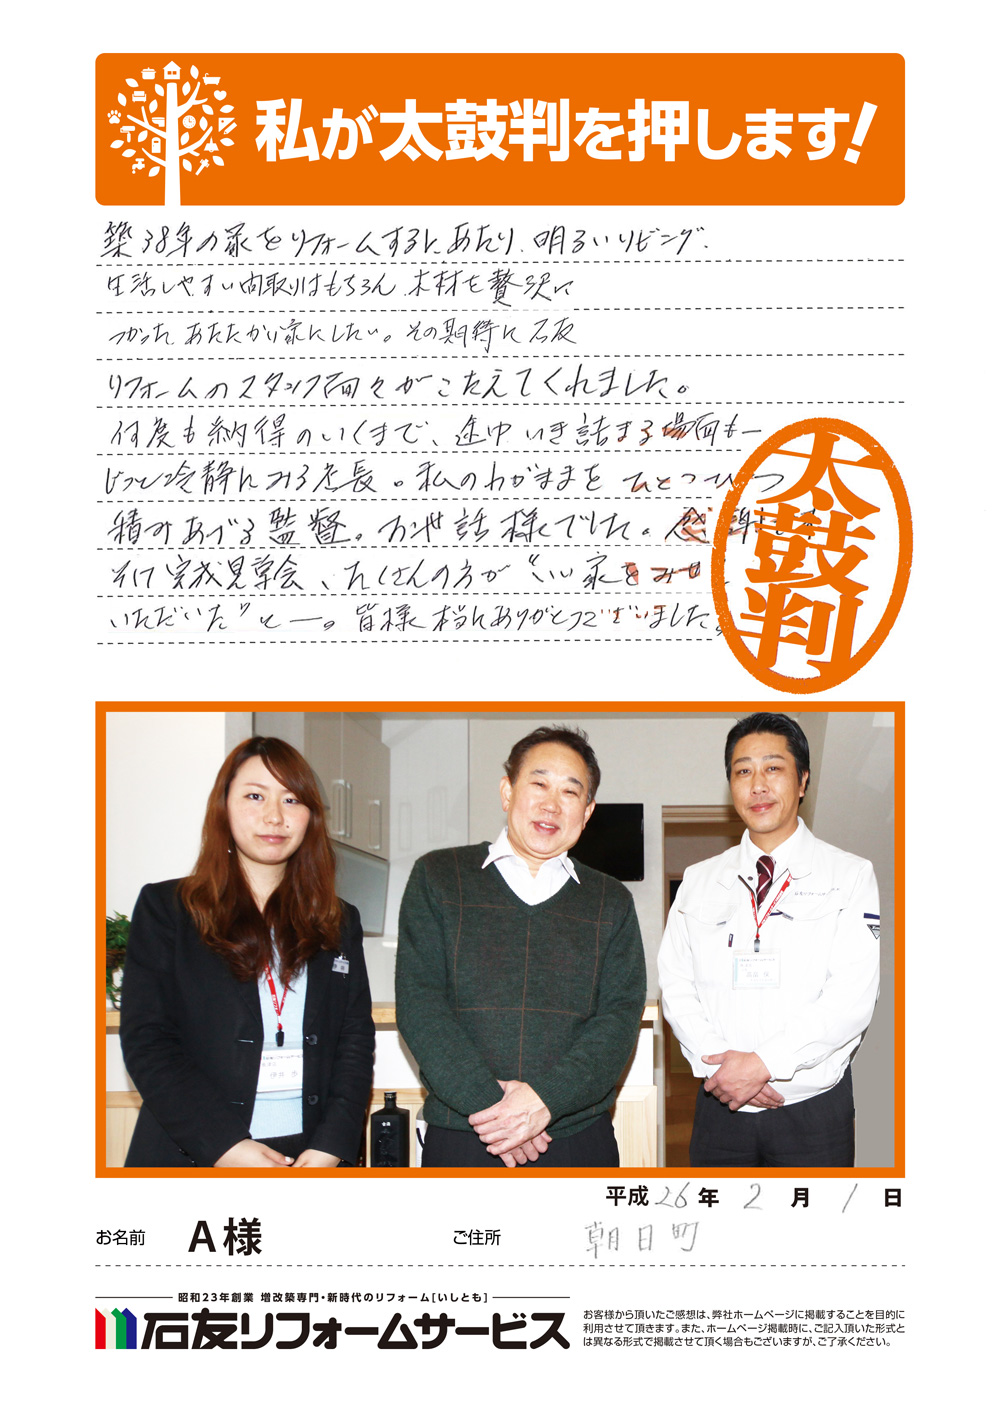 私が太鼓判を押します!
築38年の家をリフォームするにあたり、明るいリビング、
生活しやすい間取りはもちろん、木材を贅沢に
つかった、あたたかい家にしたい。その期待に石友
リフォームのスタッフ面々がこたえてくれました。
何度も納得のいくまで、途中いき詰まる場面も一
じっと冷静にみる店長。私のわがままを ひとつひとつ
積みあげる監督。お世話様でした。感謝
そして完成見学会、たくさんの方が“いい家をみせ
いただいた”と―。皆様本当にありがとうございました。
太鼓判
平成26年 2月 1日
お名前 A様 ご住所 朝日町
昭和23年創業 増改築専門・新時代のリフォーム[いしとも]
石友リフォームサービス
お客様から頂いたご感想は、弊社ホームページに掲載することを目的に
利用させて頂きます。また、ホームページ掲載時に、ご記入頂いた形式と
は異なる形式で掲載させて頂く場合もございますが、ご了承ください。